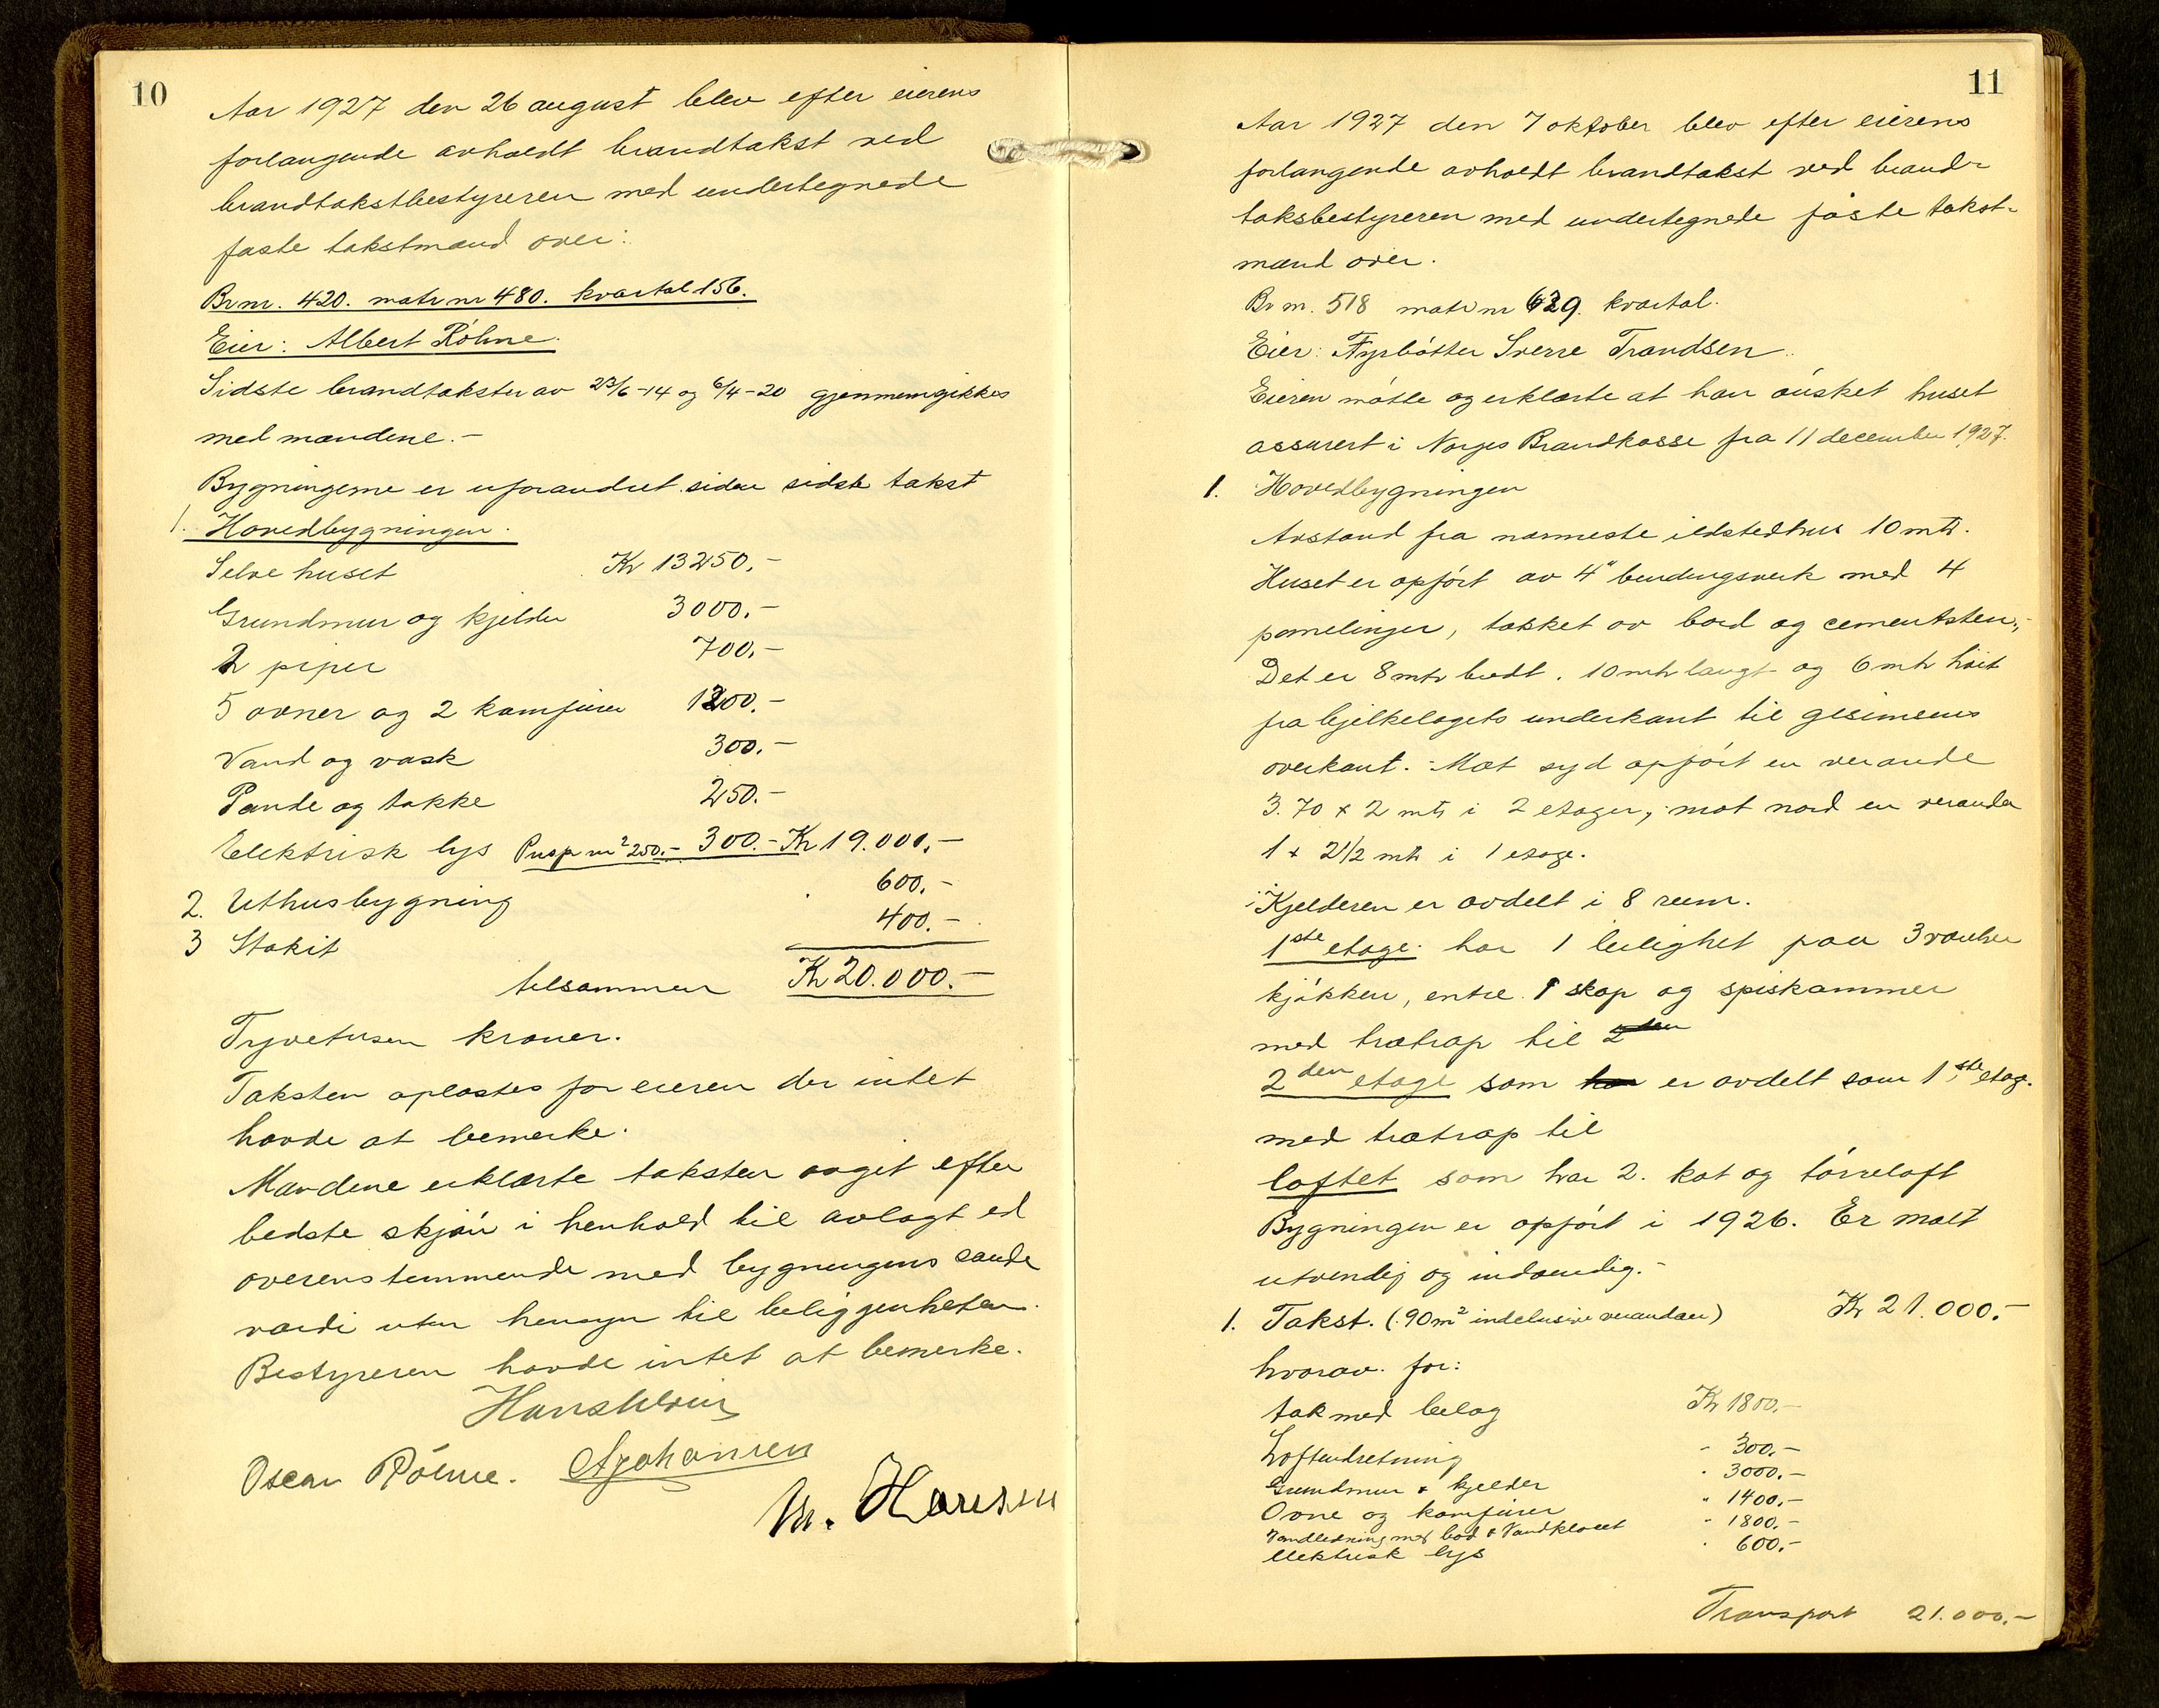 10
Aar 1927 den 26 august blev efter eierens
forlangende avholdt brandtakst ved
brandtakstbestyreren med undertegnede
faste takstmænd over:
Br nr. 420. matr nr 480. kvartal 156.
Eier: Albert Röhne.
Sidste brandtakster av 23/6-14 og 6/4-20 gjennemgikkes
med mændene.-
Bygningerne er uforandret siden sidste takst
1. Hovedbygningen.
Selve huset Kr 13250,-
Grundmur og kjelder 3000,-
2 piper 700,-
5 ovner og 2 komfurer 1200,-
Vand og vask 300,-
Pande og takke 250.-
Elektrisk lys Pr m² 250.- 300.- Kr 19.000,-
2. Uthusbygning 600,-
3 Stakit 400.-
tilsammen Kr 20.000.-
Tyvetusen kroner.
Taksten oplæstes for eieren der intet
havde at bemerke.
Mændene erklærte taksten avgit efter
bedste skjön i henhold til avlagt ed
overenstemmende med bygningens sande
værdi uten hensyn til beliggenheten.
Bestyreren havde intet at bemerke.
Oscar Röhne. A Johansen
M. Hansen
11
Aar 1927 den 7 oktober blev efter eierens
forlangende avholdt brandtakst ved brand-
taksbestyreren med undertegnede faste takst-
mænd over.
Br nr. 518 matr nr 639. kvartal.
Eier: Fyrbötter Sverre Trandsen.
Eieren mötte og erklærte at han önsket huset
assurert i Norges Brandkasse fra 11 december 1927.
1. Hovedbygningen
Avstand fra nærmeste ildstedhus 10 mtr.
Huset er opfört av 4" bindingsverk med 4
panelinger, tækket av bord og cementsten,-
Det er 8 mtr bredt. 10 mtr langt og 6 mtr höit
fra bjelkelagets underkant til gesimsens
overkant. Mot syd opfört en verande
3.70 x 2 mtr i 2 etager, mot nord en veranda
1 x 2 1/2 mtr i 1 etage.
Kjelderen er avdelt i 8 rum.
1ste etage. har 1 leilighet paa 3 værelser
kjökken, entre. 1 skap og spiskammer
med trætrap til 2den
2den etage som har er avdelt som 1ste etag.
med trætrap til
loftet som har 2. kot og törreloft
Bygningen er opfört i 1926. Er malt
utvendig og indvendig.-
1. Takst. (90 m² indclusive verandaer) Kr 21.000.-
hvorav. for:
tak med belag Kr 1800.-
Loftindretning " 300,-
Grundmur & kjelder " 3000,-
Ovne og komfurer " 1400,-
Vandledning med bad & Vandkloset " 1800,-
Elektrisk lys " 600,-
Transport 21.000,-